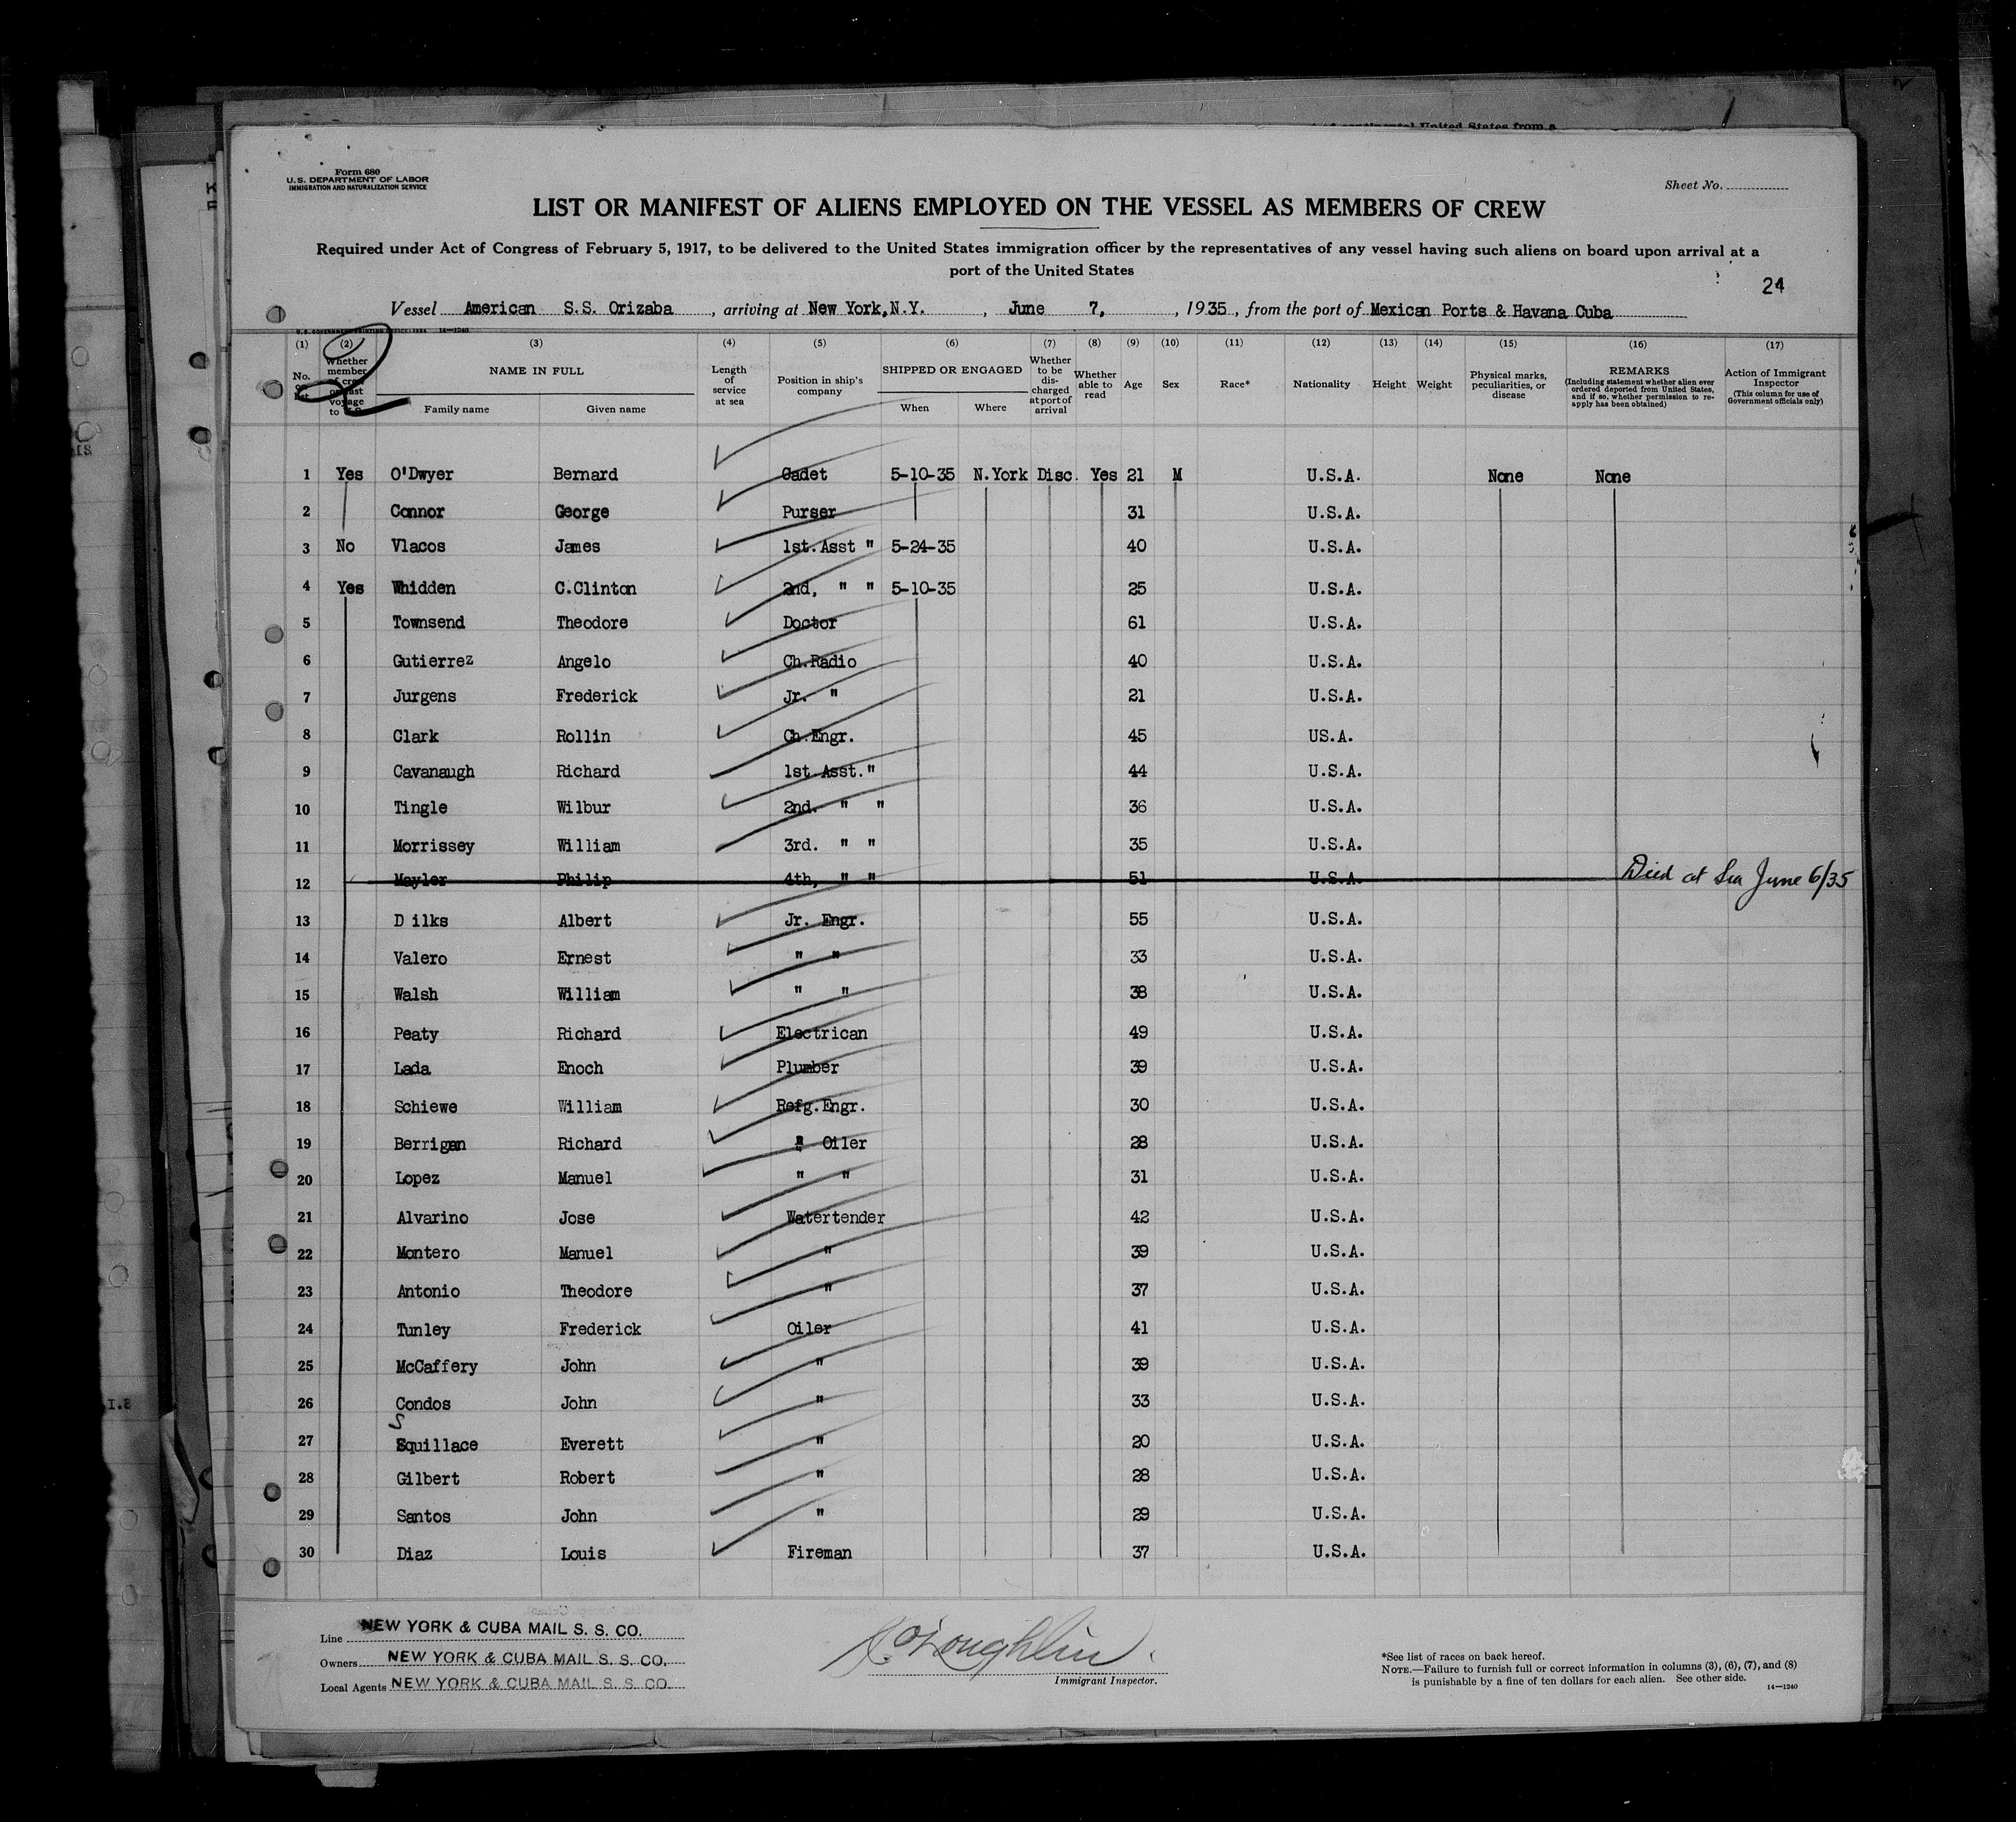 Form 680
U.S. DEPARTMENT OF LABOR
IMMIGRATION AND NATURALIZATION SERVICE
Sheet No.
LIST OR MANIFEST OF ALIENS EMPLOYED ON THE VESSEL AS MEMBERS OF CREW
Required under Act of Congress of February 5, 1917, to be delivered to the United States immigration officer by the representatives of any vessel having such aliens on board upon arrival at a
port of the United States
24
Vessel American S.S. Orizaba, arriving at New York,N.Y., June 7, , 1935, from the port of Mexican Ports & Havana Cuba
(1) (2) (3) (4) (5) (6) (7) (8) (9) (10) (11) (12) (13) (14) (15) (16) (17)
No. on list
Whether member of crew on last voyage to U.S.
NAME IN FULL
Family name Given name
Length of service at sea
Position in ship's company
SHIPPED OR ENGAGED
When Where
Whether to be discharged at port of arrival
Whether able to read
Age
Sex
Race*
Nationality
Height
Weight
Physical marks, peculiarities, or disease
REMARKS
(Including statement whether alien ever ordered deported from United States, and if so, whether permission to re-apply has been obtained)
Action of Immigrant Inspector
(This column for use of Government officials only)
1 Yes O'Dwyer Bernard Cadet 5-10-35 N.York Disc. Yes 21 M U.S.A. None None
2 Connor George Purser 31 U.S.A.
3 No Vlacos James 1st.Asst " 5-24-35 40 U.S.A.
4 Yes Whidden C.Clinton 2nd, " " 5-10-35 25 U.S.A.
5 Townsend Theodore Doctor 61 U.S.A.
6 Gutierrez Angelo Ch.Radio 40 U.S.A.
7 Jurgens Frederick Jr. " 21 U.S.A.
8 Clark Rollin Ch.Engr. 45 US.A.
9 Cavanaugh Richard 1st.Asst." 44 U.S.A.
10 Tingle Wilbur 2nd. " " 36 U.S.A.
11 Morrissey William 3rd. " " 35 U.S.A.
12 Mayler Philip 4th, " " 51 U.S.A. Died at Sea June 6/35
13 D ilks Albert Jr. Engr. 55 U.S.A.
14 Valero Ernest " " 33 U.S.A.
15 Walsh William " " 38 U.S.A.
16 Peaty Richard Electrican 49 U.S.A.
17 Lada Enoch Plumber 39 U.S.A.
18 Schiewe William Refg.Engr. 30 U.S.A.
19 Berrigan Richard " Oiler 28 U.S.A.
20 Lopez Manuel " " 31 U.S.A.
21 Alvarino Jose Watertender 42 U.S.A.
22 Montero Manuel " 39 U.S.A.
23 Antonio Theodore " 37 U.S.A.
24 Tunley Frederick Oiler 41 U.S.A.
25 McCaffery John " 39 U.S.A.
26 Condos John " 33 U.S.A.
27 Squillace Everett " 20 U.S.A.
28 Gilbert Robert " 28 U.S.A.
29 Santos John " 29 U.S.A.
30 Diaz Louis Fireman 37 U.S.A.
Line NEW YORK & CUBA MAIL S. S. CO.
Owners NEW YORK & CUBA MAIL S. S. CO.
Local Agents NEW YORK & CUBA MAIL S. S. CO.
O'Loughlin.
Immigrant Inspector.
*See list of races on back hereof.
NOTE.—Failure to furnish full or correct information in columns (3), (6), (7), and (8)
is punishable by a fine of ten dollars for each alien. See other side.
14—1240